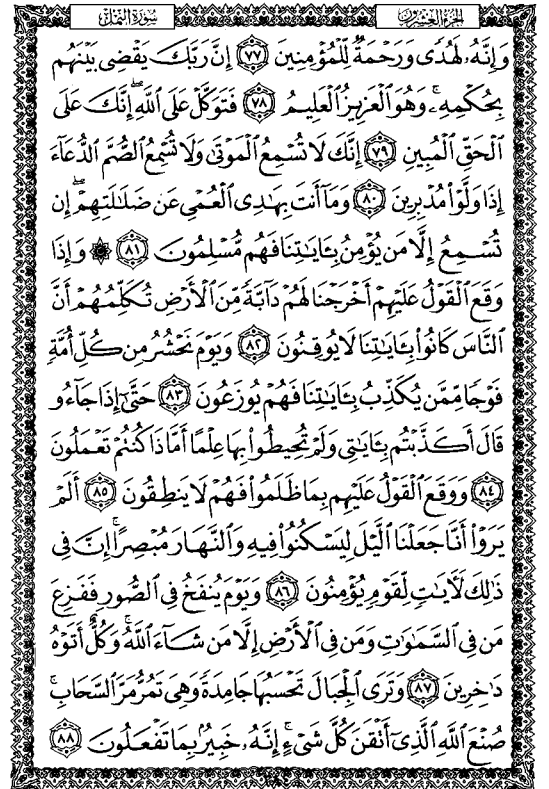 الجزء العشرون سورة النمل
وَإِنَّهُۥ لَهُدًى وَرَحْمَةٌ لِّلْمُؤْمِنِينَ ٧٧ إِنَّ رَبَّكَ يَقْضِى بَيْنَهُم
بِحُكْمِهِۦ ۚ وَهُوَ ٱلْعَزِيزُ ٱلْعَلِيمُ ٧٨ فَتَوَكَّلْ عَلَى ٱللَّهِ ۖ إِنَّكَ عَلَى
ٱلْحَقِّ ٱلْمُبِينِ ٧٩ إِنَّكَ لَا تُسْمِعُ ٱلْمَوْتَىٰ وَلَا تُسْمِعُ ٱلصُّمَّ ٱلدُّعَآءَ
إِذَا وَلَّوْا۟ مُدْبِرِينَ ٨٠ وَمَآ أَنتَ بِهَـٰدِى ٱلْعُمْىِ عَن ضَلَـٰلَتِهِمْ ۖ إِن
تُسْمِعُ إِلَّا مَن يُؤْمِنُ بِـَٔايَـٰتِنَا فَهُم مُّسْلِمُونَ ٨١ ۞ وَإِذَا
وَقَعَ ٱلْقَوْلُ عَلَيْهِمْ أَخْرَجْنَا لَهُمْ دَآبَّةً مِّنَ ٱلْأَرْضِ تُكَلِّمُهُمْ أَنَّ
ٱلنَّاسَ كَانُوا۟ بِـَٔايَـٰتِنَا لَا يُوقِنُونَ ٨٢ وَيَوْمَ نَحْشُرُ مِن كُلِّ أُمَّةٍ
فَوْجًا مِّمَّن يُكَذِّبُ بِـَٔايَـٰتِنَا فَهُمْ يُوزَعُونَ ٨٣ حَتَّىٰٓ إِذَا جَآءُو
قَالَ أَكَذَّبْتُم بِـَٔايَـٰتِى وَلَمْ تُحِيطُوا۟ بِهَا عِلْمًا أَمَّاذَا كُنتُمْ تَعْمَلُونَ
٨٤ وَوَقَعَ ٱلْقَوْلُ عَلَيْهِم بِمَا ظَلَمُوا۟ فَهُمْ لَا يَنطِقُونَ ٨٥ أَلَمْ
يَرَوْا۟ أَنَّا جَعَلْنَا ٱلَّيْلَ لِيَسْكُنُوا۟ فِيهِ وَٱلنَّهَارَ مُبْصِرًا ۚ إِنَّ فِى
ذَٰلِكَ لَـَٔايَـٰتٍ لِّقَوْمٍ يُؤْمِنُونَ ٨٦ وَيَوْمَ يُنفَخُ فِى ٱلصُّورِ فَفَزِعَ
مَن فِى ٱلسَّمَـٰوَٰتِ وَمَن فِى ٱلْأَرْضِ إِلَّا مَن شَآءَ ٱللَّهُ ۚ وَكُلٌّ أَتَوْهُ
دَٰخِرِينَ ٨٧ وَتَرَى ٱلْجِبَالَ تَحْسَبُهَا جَامِدَةً وَهِىَ تَمُرُّ مَرَّ ٱلسَّحَابِ ۚ
صُنْعَ ٱللَّهِ ٱلَّذِىٓ أَتْقَنَ كُلَّ شَىْءٍ ۚ إِنَّهُۥ خَبِيرٌۢ بِمَا تَفْعَلُونَ ٨٨